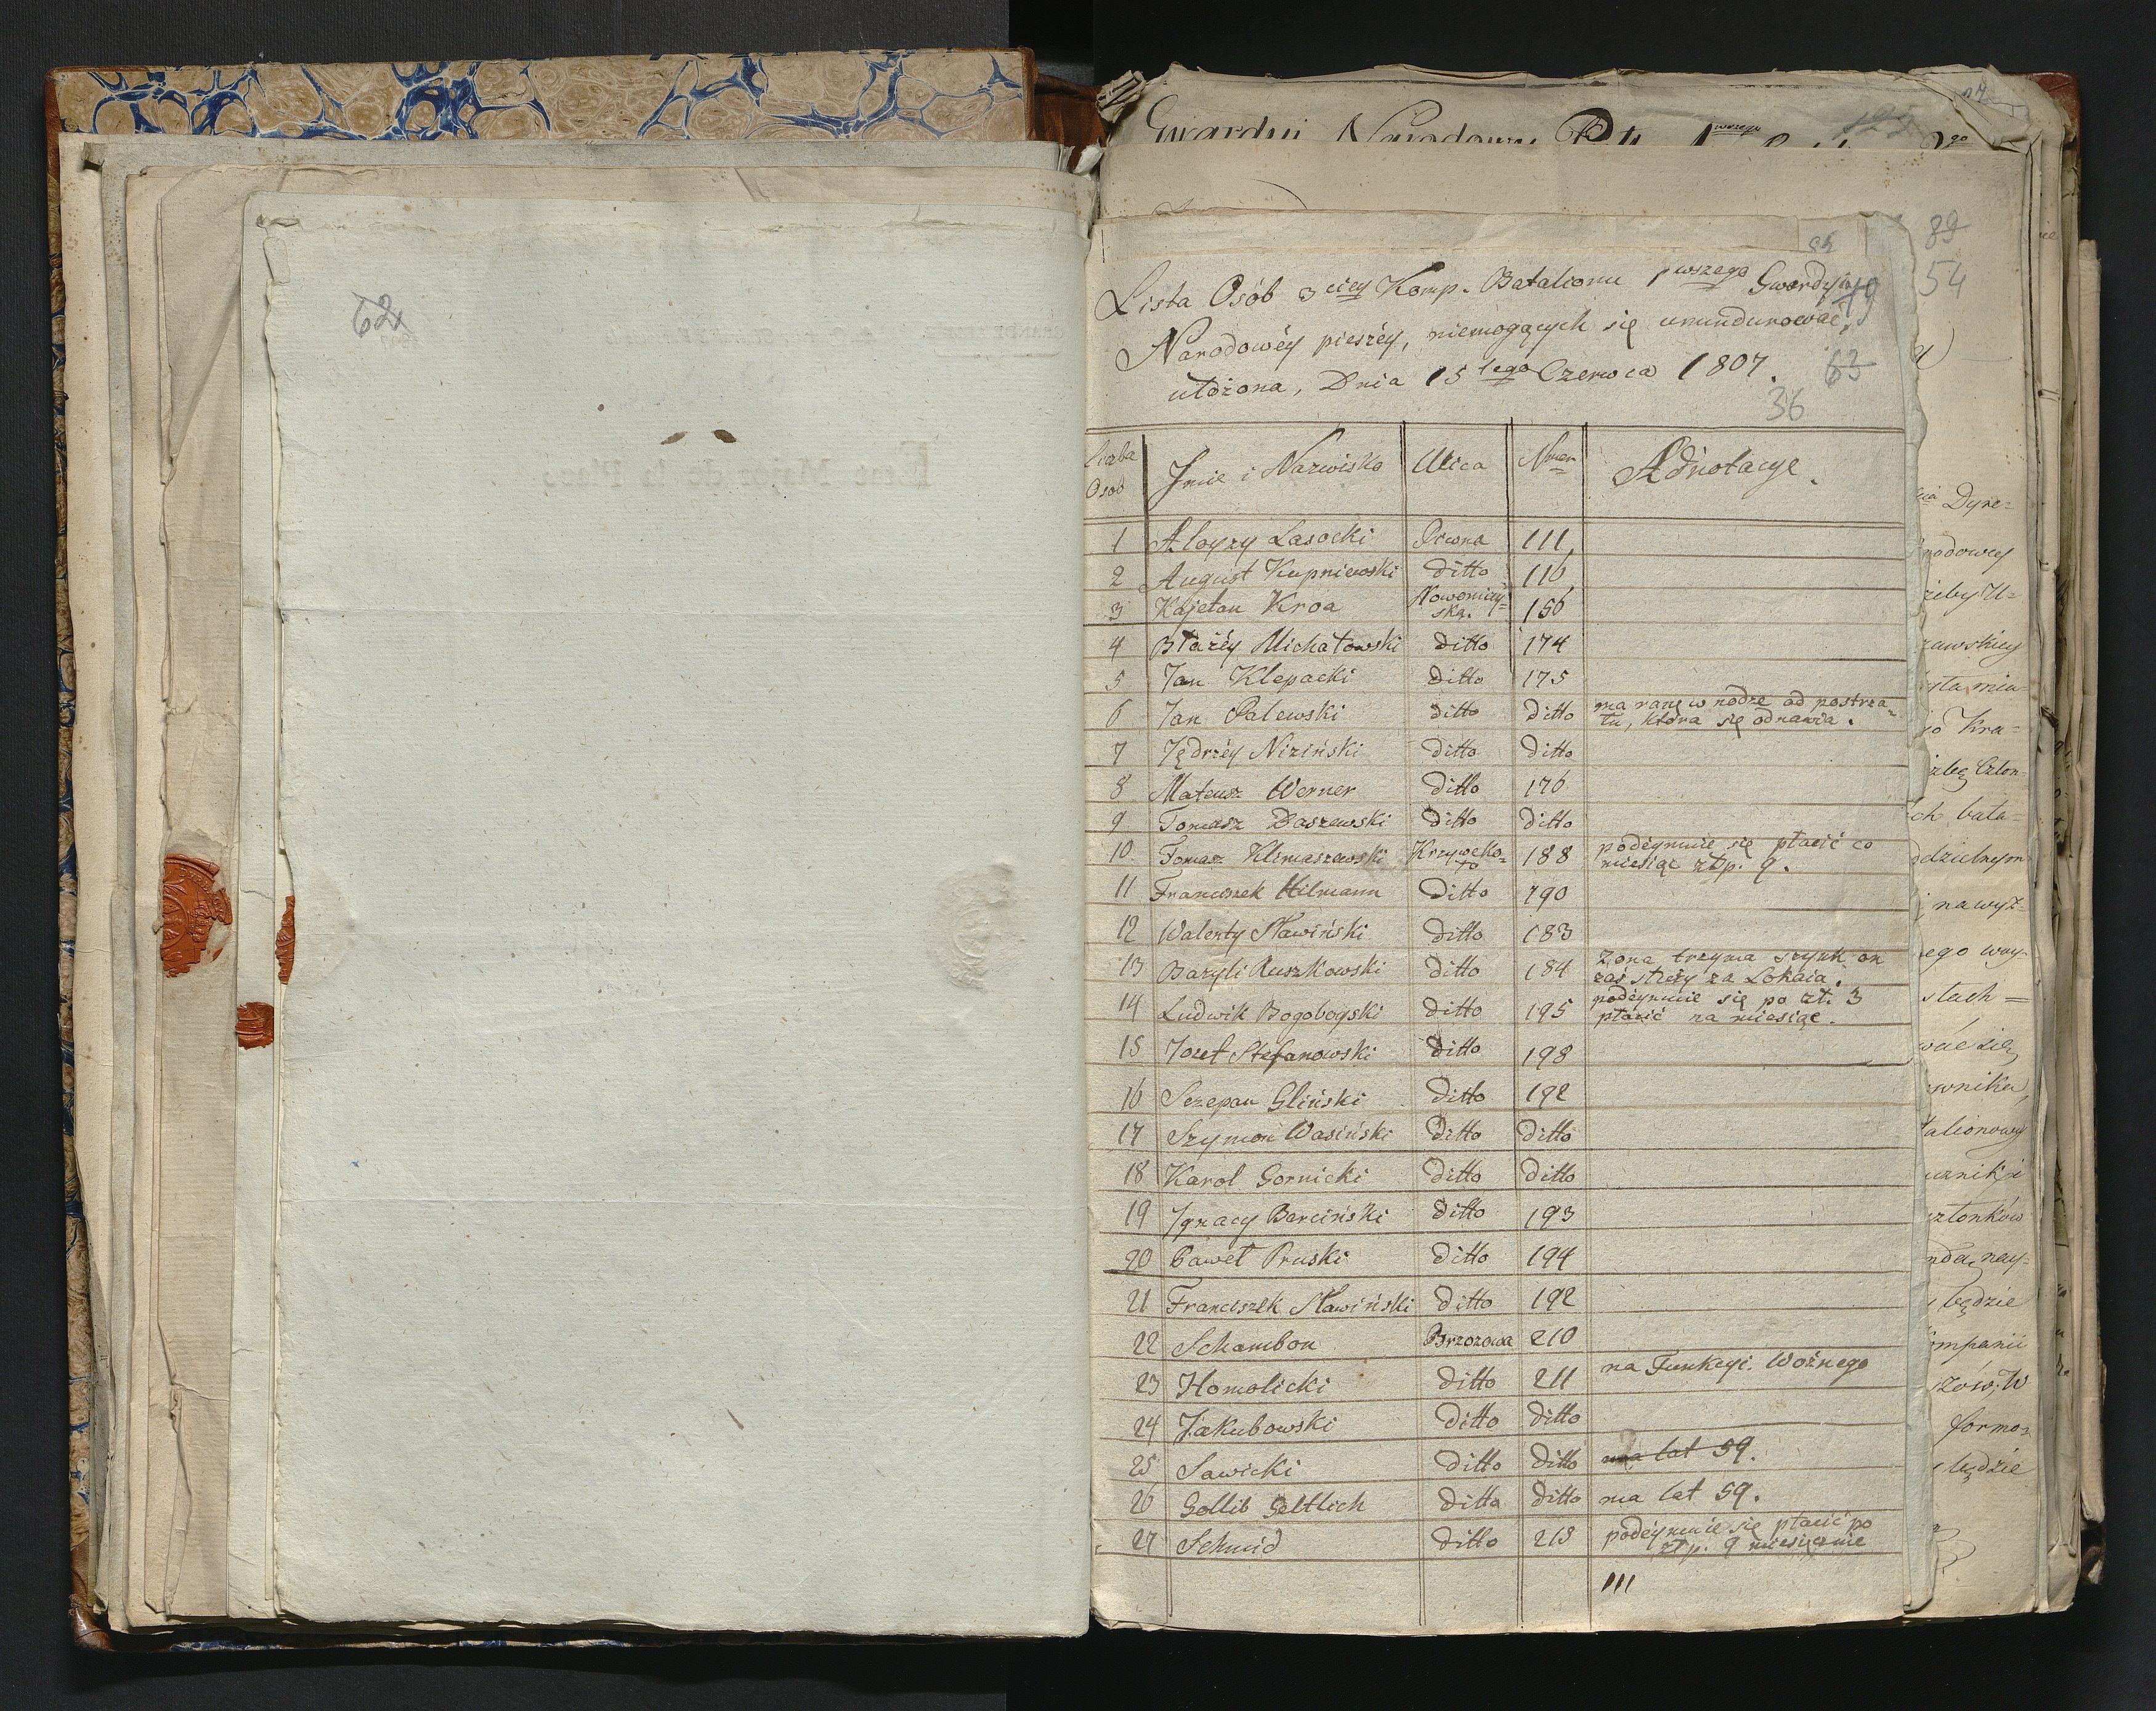 62
Lista Osób 3ciey Komp. Batalionu 1wszego Gwardyi
Narodowéy pieszéy, niemogących się umundurować,
ułożona, Dnia 15tego Czerwca 1807.
89
54
79
63
36
Liczba Osób | Jmie i Nazwisko | Ulica | Nmer | Adnotacye.
1 Aloyzy Lasocki Piwna 111
2 August Kupniewski ditto 116
3 Kajetan Kroa Nowomiey=ska. 156
4 Błażéy Michałowski ditto 174
5 Jan Klepacki ditto 175
6 Jan Palewski ditto ditto ma ranę w nodze od postrza=
łu, która się odnawia.
7 Jędrzéy Niziński ditto ditto
8 Mateusz Werner ditto 176
9 Tomasz Daszewski ditto ditto
10 Tomasz Klimaszewski Krzywoko=ło 188 podeymuie się płacić co
miesiąc złp. 9.
11 Franciszek Hilmann ditto 190
12 Walenty Sławiński ditto 183
13 Bazyli Ruszkowski ditto 184 Żona trzyma szynk on
zaś służy za Lokaia.
14 Ludwik Bogobogski ditto 195 podeymuie się po zł. 3
płacić na miesiąc.
15 Jozef Stefanowski ditto 198
16 Sczepan Gliński ditto 192
17 Szymon Wasiński ditto ditto
18 Karol Gornicki ditto ditto
19 Jgnacy Barciński ditto 193
20 Paweł Pruski ditto 194
21 Franciszek Sławiński ditto 192
22 Schambon Brzozowa 210
23 Homolicki ditto 211 na Funkcyi Woźnego
24 Jakubowski ditto ditto
25 Sawicki ditto ditto ma lat 59.
26 Gollib Geltlich ditto ditto ma lat 59.
27 Schmid ditto 213 podeymuie się płacić po
złp. 9 miesięcznie
111